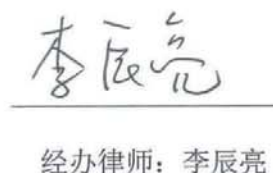 李辰亮
经办律师：李辰亮